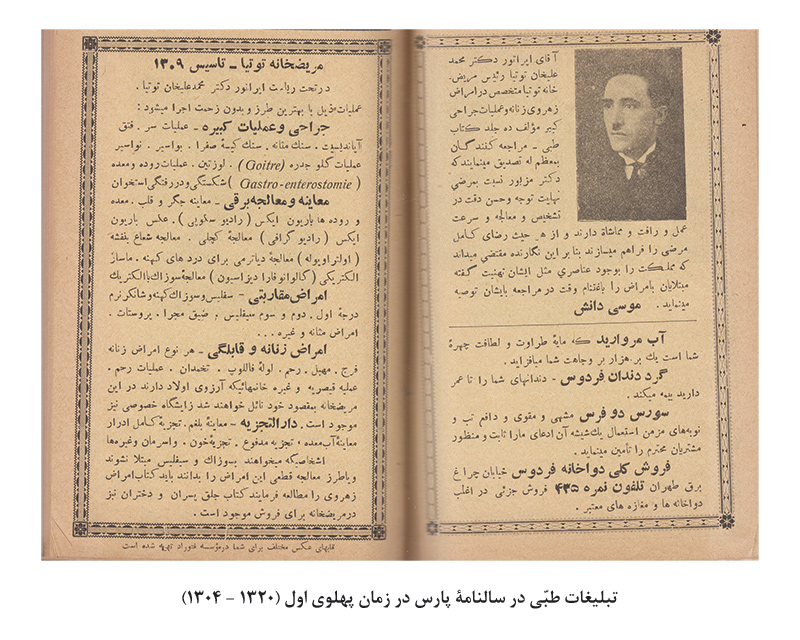 آقای ایرانور دکتر محمد
علیخان توتیا رئیس مریض
خانه توتیا متخصص در امراض
زهروی زنانه و عملیات جراحی
کبیر مؤلف ده جلد کتاب
طبی - مراجعه کنندگان
بمعظم له تصدیق مینمایند که
دکتر مزبور نسبت بمرضی
نهایت توجه و حسن دقت در
تشخیص و معالجه و سرعت
عمل و رافت و مماشاة دارند و از هر حیث رضای کامل
مرضی را فراهم میسازند بنا بر این نگارنده مقتضی میداند
که مملکت را بوجود عناصری مثل ایشان تهنیت گفته
مبتلایان بامراض را باغتنام وقت در مراجعه بایشان توصیه
مینماید . موسی دانش
آب مروارید که مایهٔ طراوت و لطافت چهرهٔ
شما است یك بر هزار بر وجاهت شما میافزاید .
گرد دندان فردوس - دندانهای شما را تا عمر
دارید بیمه میکند .
سورس دو فرس مشهی و مقوی و دافع تب و
نوبه‌های مزمن استعمال یك شیشه آن ادعای ما را ثابت و منظور
مشتریان محترم را تامین مینماید .
فروش کلی دواخانه فردوس خیابان چراغ
برق طهران تلفون نمره ۴۳۵ فروش جزئی در اغلب
دواخانه ها و مغازه های معتبر .
مریضخانه توتیا - تاسیس ۱۳۰۹
در تحت ریاست ایرانور دکتر محمد علیخان توتیا .
عملیات ذیل با بهترین طرز و بدون زحمت اجرا میشود :
جراحی و عملیات کبیره - عملیات سر . فتق
آپاندیسیت . سنك مثانه . سنك کیسهٔ صفرا . بواسیر . نواسیر
عملیات گلو جدره (Goitre) . لوزتین . عملیات روده و معده
(Gastro-enterostomie) شکستگی و در رفتگی استخوان
معاینه و معالجه برقی - معاینه جگر و قلب . معده
و روده ها باریون ایکس (رادیو سکوپی) . عکس باریون
ایکس (رادیو گرافی) معالجهٔ کچلی . معالجه شعاع بنفشه
(اولتراویوله) معالجهٔ دیاترمی برای درد های کهنه . ماساژ
الکتریکی (گالوانوفارا دیزاسیون) معالجهٔ سوزاك با الکتریك
امراض مقاربتی - سفلیس و سوزاك کهنه و شانکر نرم
درجهٔ اول . دوم و سوم سیفلیس . ضیق مجرا . پروستات .
امراض مثانه و غیره . . .
امراض زنانه و قابلگی - هر نوع امراض زنانه
فرج . مهبل . رحم . لولهٔ فاللوپ . تخمدان . عملیات رحم .
عملیه قیصریه و غیره خانمهائیکه آرزوی اولاد دارند در این
مریضخانه بمقصود خود نائل خواهند شد زایشگاه خصوصی نیز
موجود است . دارالتجزیه - معاینهٔ بلغم . تجزیهٔ کامل ادرار
معاینهٔ آب معده . تجزیه مدفوع . تجزیهٔ خون . واسرمان و غیره‌ها
اشخاصیکه میخواهند بسوزاك و سیفلیس مبتلا نشوند
و یا طرز معالجه قطعی این امراض را بدانند باید کتاب امراض
زهروی را مطالعه فرمایند کتاب جلق پسران و دختران نیز
در مریضخانه برای فروش موجود است .
قابهای عکس مختلف برای شما در مؤسسه فتوراد تهیه شده است
تبلیغات طبّی در سالنامهٔ پارس در زمان پهلوی اول (۱۳۲۰ - ۱۳۰۴)